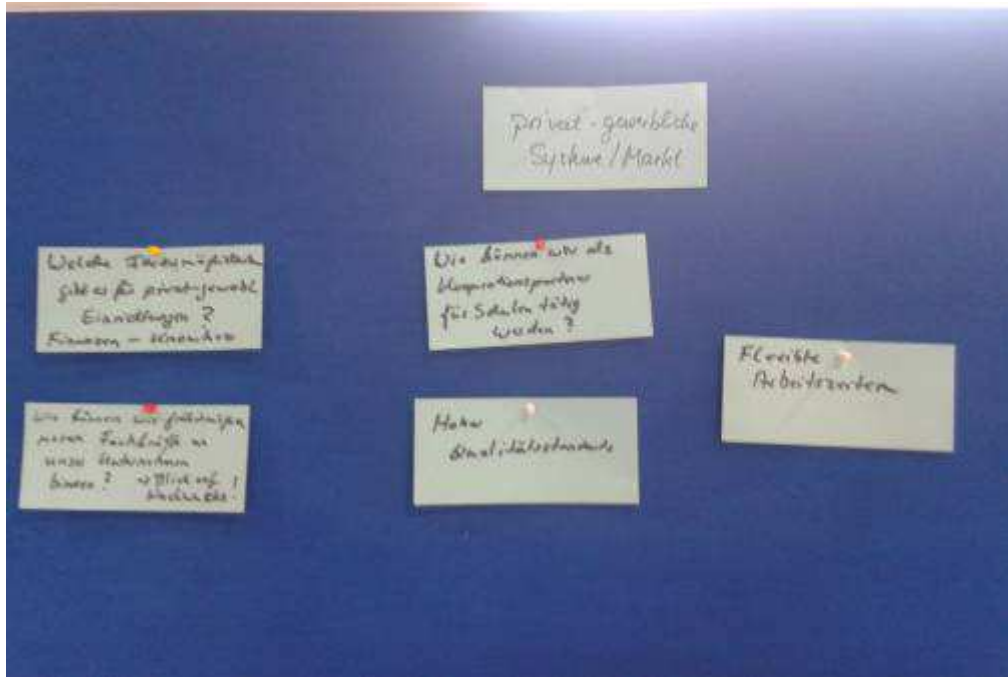 privat-gewerbliche
Systeme/Markt
Welche
gibt es für privat-gewerbl
Einrichtungen?
Finanzen – Know how
Wie können wir als
Kooperationspartner
für Schulen tätig
werden?
Flexible
Arbeitszeiten
Wie können wir
Fachkräfte an
unser Unternehmen
binden? Blick auf
Hohe
Qualitätsstandards